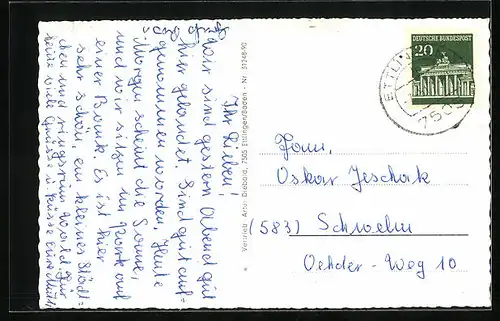 Ihr Lieben!
Wir sind gestern Abend gut
hier gelandet. Sind gut auf-
genommen worden. Heute
Morgen scheint die Sonne,
und wir sitzen im Park auf
einer Bank. Es ist hier
sehr schön, ein kleines Städt-
chen und ringsrum Wald. Für
heute viele Grüße u. Küsse
Vertrieb: Arno Diebold, 7505 Ettlingen/Baden - Nr. 31248-90
DEUTSCHE BUNDESPOST
20
ETTLIN
7505
Fam.
Oskar Jeschak
(583) Schwelm
Oehder-Weg 10